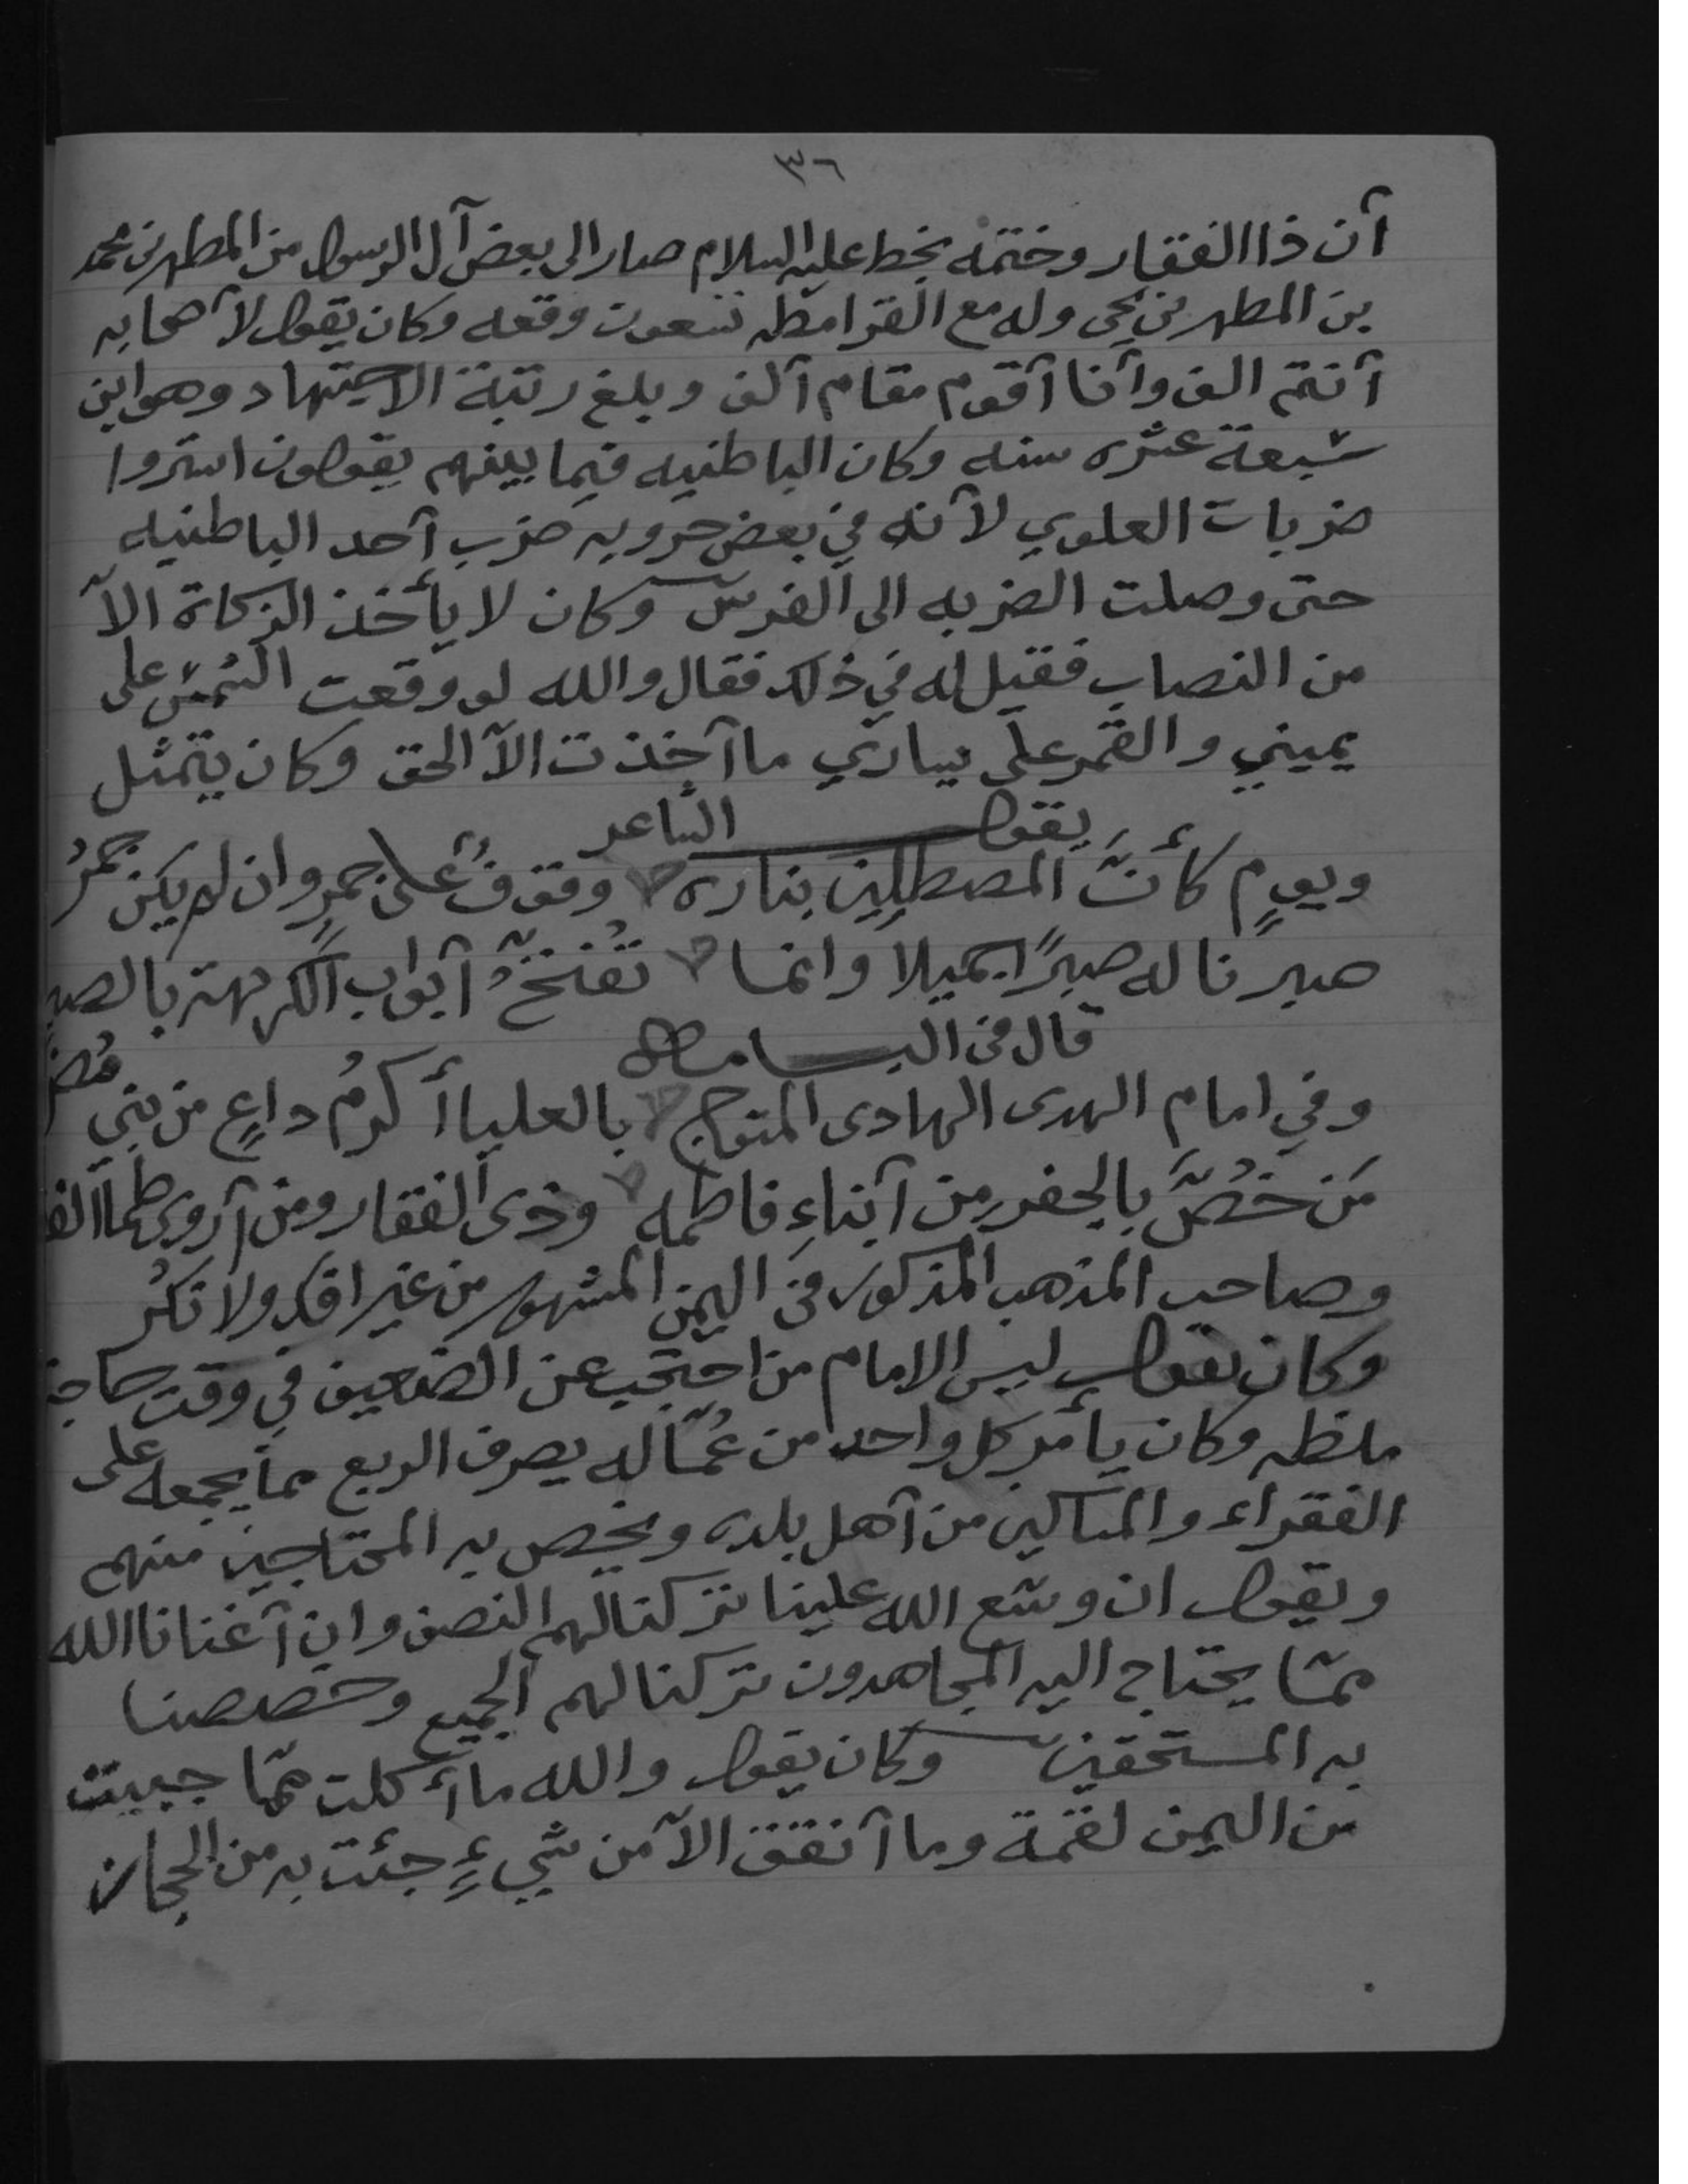 ٣٦
أن ذا الفقار وختمه بخط عليه السلام صار الى بعض آل الرسول من المطهر بن محمد
بن المطهر بن يحي وله مع القرامطه تسعون وقعه وكان يقول لأصحابه
أنتم الف وأنا أقوم مقام ألف وبلغ رتبة الاجتهاد وهو ابن
سبعة عشره سنه وكان الباطنيه فيما بينهم يقولون استروا
ضربات العلوي لأنه في بعض حروبه ضرب أحد الباطنيه
حتى وصلت الضربه الى الفرس وكان لا يأخذ الزكاة الآ
من النصاب فقيل له في ذلك فقال والله لو وقعت الشمس على
يميني والقمر على يساري ما أخذت الآ الحق وكان يتمثل
يقول الشاعر
ويومٍ كأنَّ المصطلين بناره وقوفٌ على جمرٍ وان لم يكن جمرُ
صبرنا له صبرًا جميلا وانما تُفتّحُ أبواب الكريهة بالصبر
قال في البسامه
وفي امام الهدى الهادى المتوج بالعليا أكرمُ داعٍ من بني مُضر
مَن خُصَّ بالجفرِ من أبناءِ فاطمه وذى الفقار ومن أروى ظما الفقر
وصاحب المذهب المذكور في اليمن المشهور من غير افك ولا نكُر
وكان يقول ليس الامام من احتجب عن الضعيف في وقت حاجة
ملظه وكان يأمر كل واحد من عُمّاله يصرف الربع مما يجمعه على
الفقراء والمساكين من أهل بلده ويخص به المحتاجين منهم
ويقول ان وسّع الله علينا تركنا لهم النصف وان أغنانا الله
ممّا يحتاج اليه المجاهدون تركنا لهم الجميع وخصصنا
به المستحقين وكان يقول والله ما أكلت ممّا جبيت
من اليمن لقمة وما أنفق الآ من شيءٍ جئت به من الحجاز